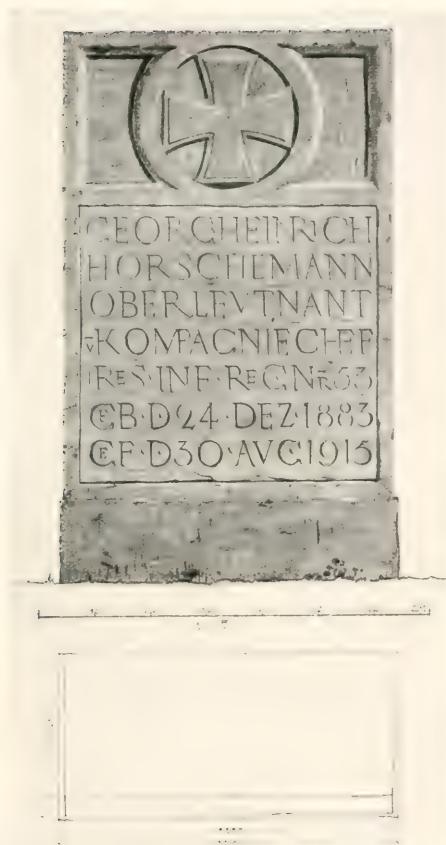 GEORG HEINRICH
HORSCHEMANN
OBERLEVTNANT
V KOMPAGNIECHEF
I RES·INF·REG NR 53
GEB·D 24·DEZ·1883
GEF·D 30·AVG 1915